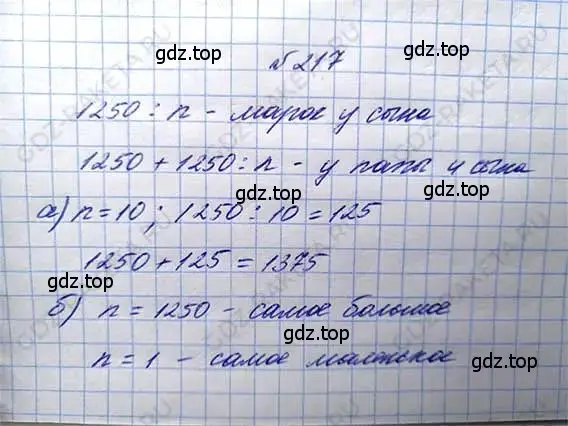 №217
1250 : n - марок у сына
1250 + 1250 : n - у папы и сына
а) n = 10; 1250 : 10 = 125
1250 + 125 = 1375
б) n = 1250 - самое большое
n = 1 - самое маленькое
gdz.top
gdz.top
gdz.top
gdz.top
gdz.top
gdz.top
gdz.top
gdz.top
GDZ-RAKETA.RU